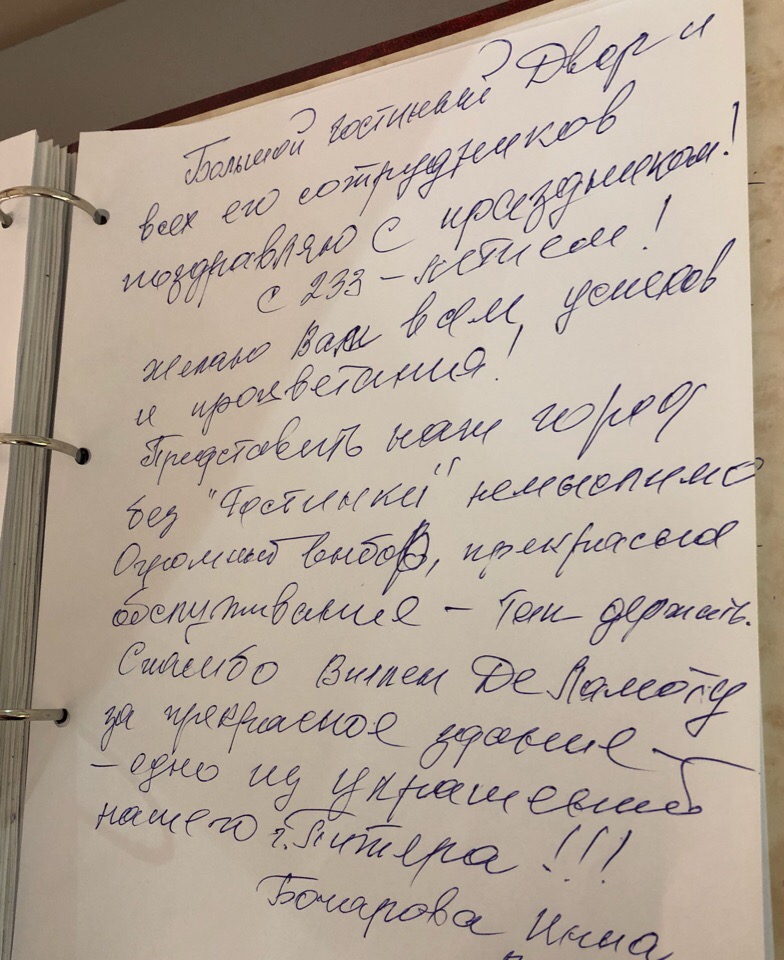 Большой гостиный Двор и
всех его сотрудников
поздравляю с праздником!
с 233-летием!
желаю Вам всем успехов
и процветания!
Представить наш город
без "Гостинки" немыслимо
Огромный выбор, прекрасное
обслуживание – так держать.
Спасибо Вилам Де Ламоту
за прекрасное здание –
– одно из украшений
нашего г. Питера!!!
Бочарова Инна